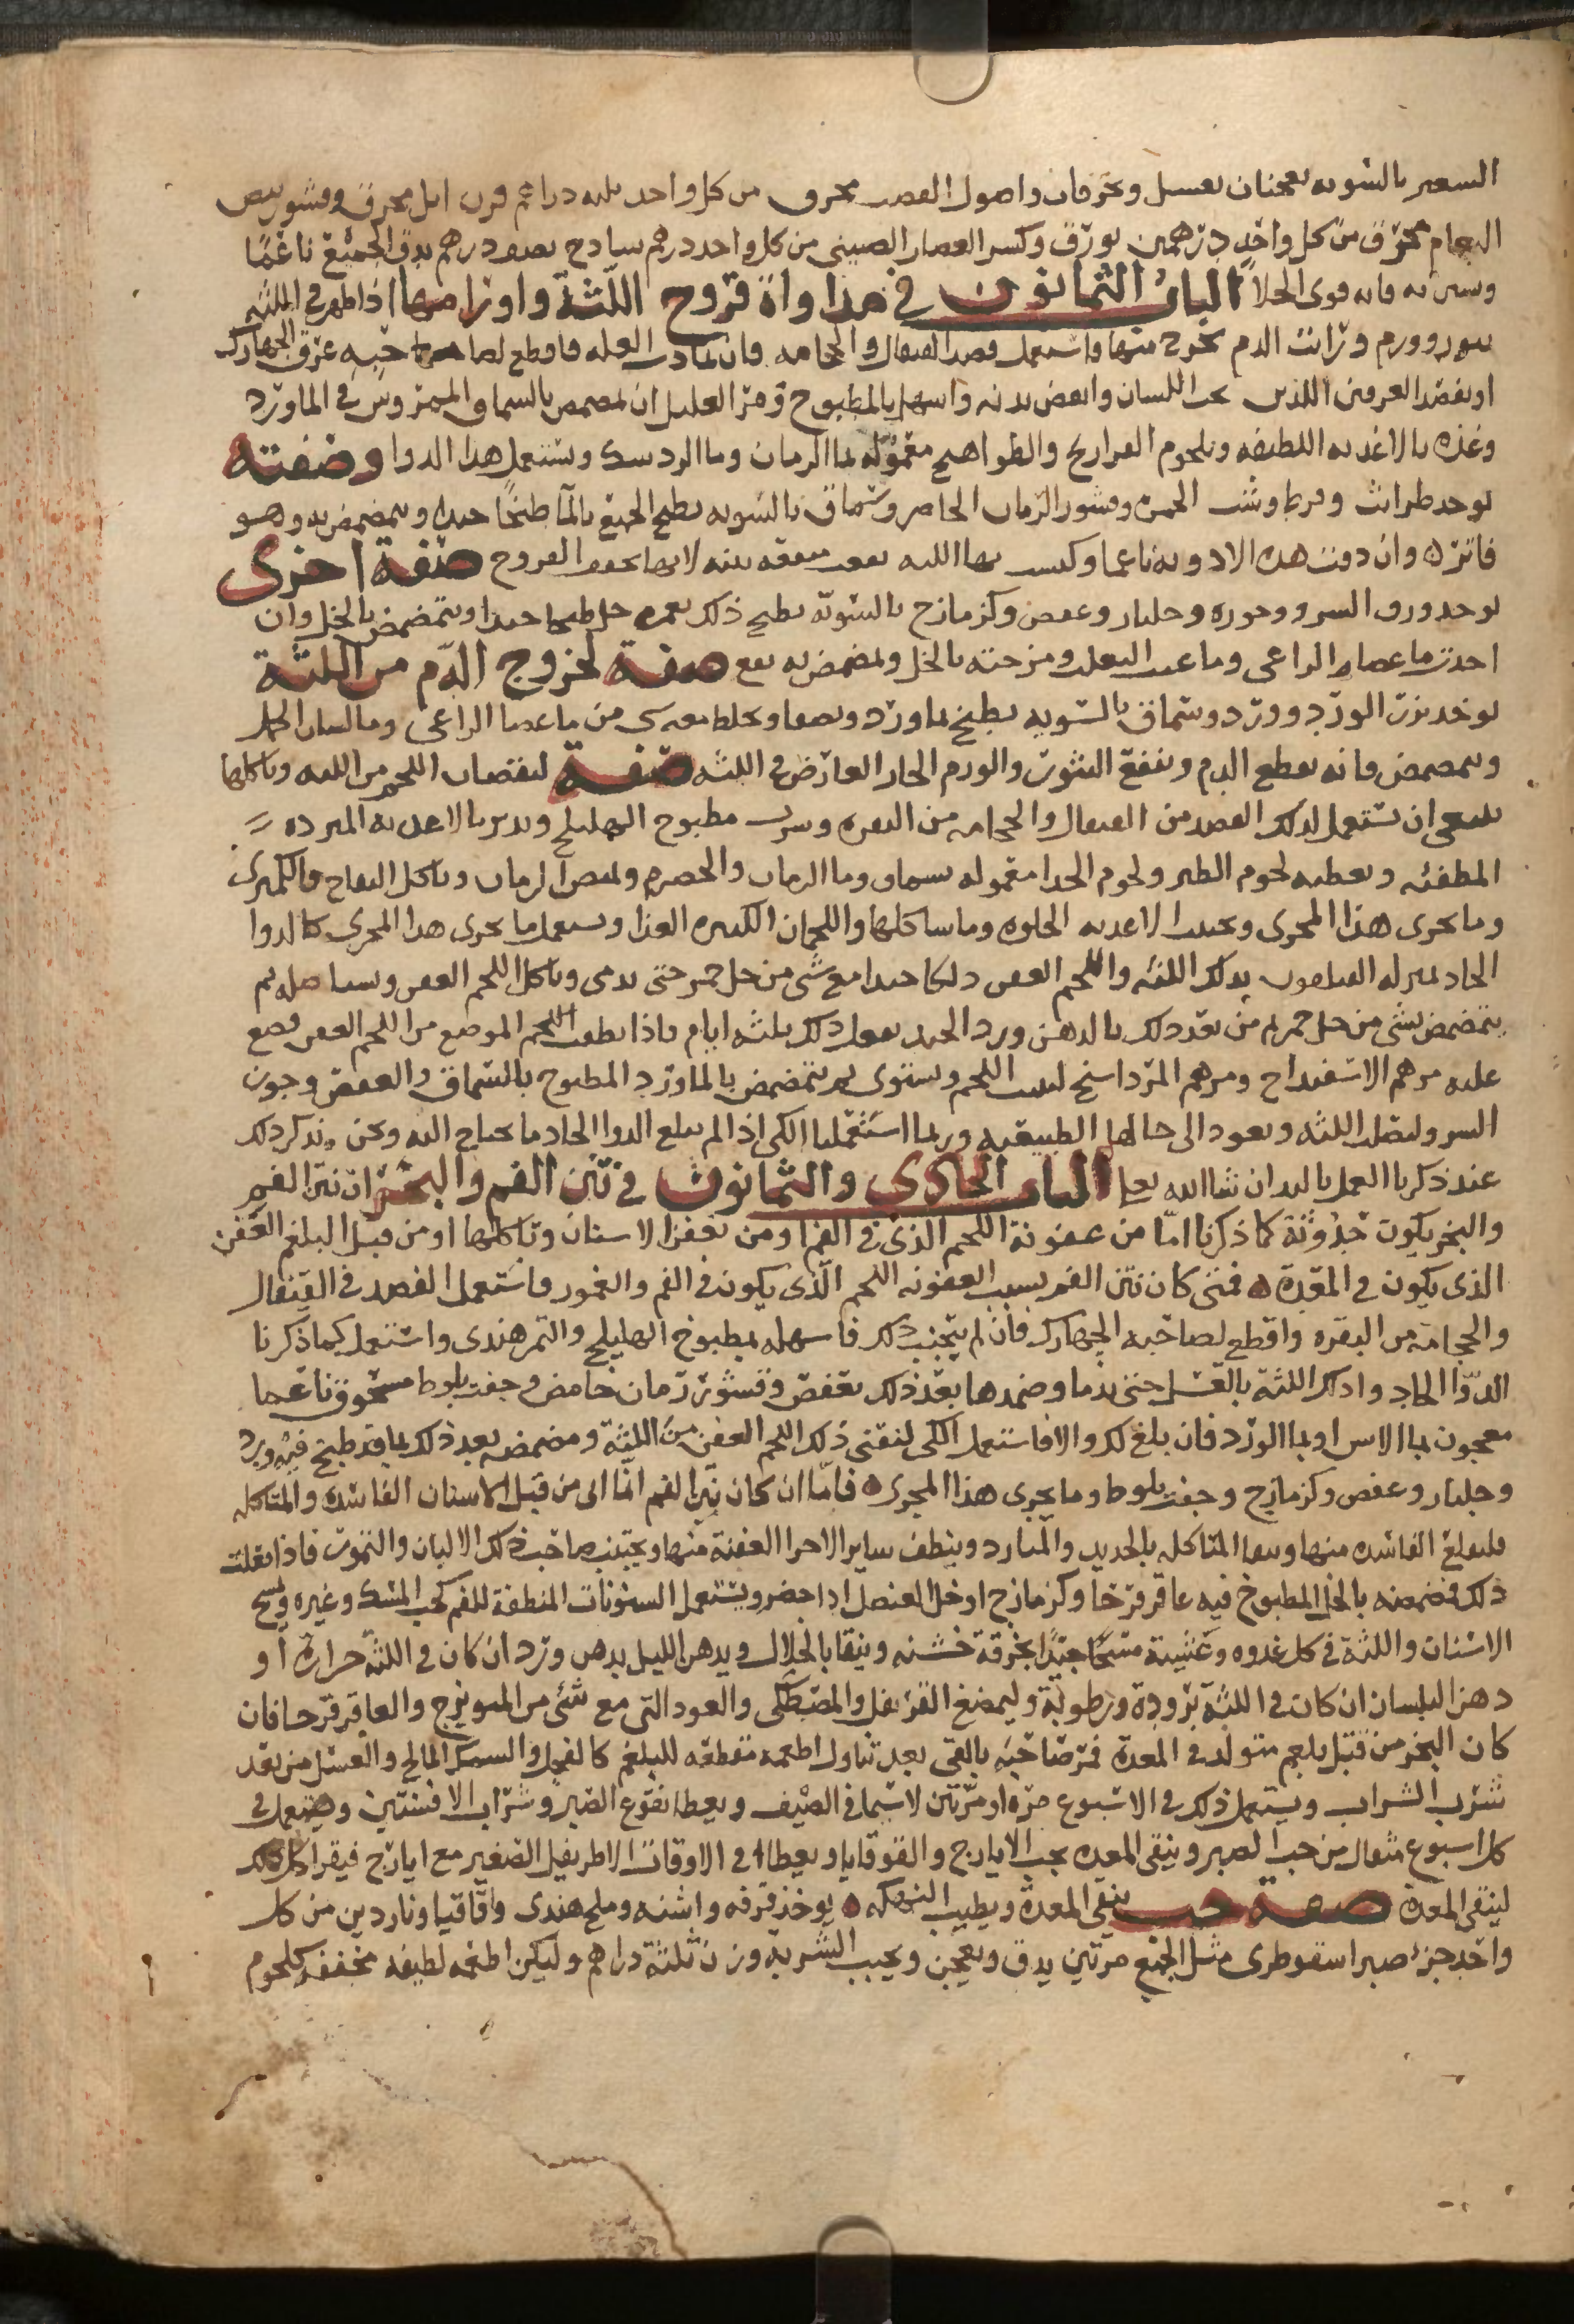 السعير بالسويه يعجنان بعسل ويحرقان واصول القصب محرق من كل واحد ثلثه دراهم قرن ايل محرق وقشور بيض
النعام محرق من كل واحد درهمين بورق وكسر الغضار الصيني من كل واحد درهم سادج نصف درهم يدق الجميع ناعما
ويستن به فانه قوى الجلا الباب الثمانون في مداواة قروح اللثة واورامها اذا ظهر في اللثه
بثور وورم ورايت الدم يخرج منها فاستعمل فصد القيفال والحجامه فان تمادت العله فاقطع لصاحبه عرق الجهارك
او يفصد العروق اللذين تحت اللسان وانفض بدنه واسهل بالمطبوخ ومر العليل ان يتمضمض بالسماق الممروس في الماورد
وغذه بالاغديه اللطيفه وبلحوم الفراريج والطواهيج معموله بما الرمان وما الورد ويستعمل هذا الدوا وصفته
يوخد طراثيث وقرط وشب الحمره وقشور الرمان الحامض وسماق بالسويه يطبخ الجميع بالما طبخا جيدا ويتمضمض به وهو
فاتر وان دقت هذه الادويه ناعما وكبست بها اللثه نفعت منفعه بينه لانها تجفف القروح صفة اخرى
يوخد ورق السرو وجوزه وجلنار وعفص وكزمازج بالسويه يطبخ ذلك بخل طبخا جيدا ويتمضمض بالخل وان
اخدت ما عصا الراعى وما عنب الثعلب ومزجته بالخل وتمضمض به نفع صفة لخروج الدم من اللثة
يوخد بزر الورد وورد وسماق بالسويه يطبخ بماورد ويصفا ويخلط معه شى من ما عصا الراعى وما لسان الحمل
ويتمضمض فانه يقطع الدم وينفع البثور والورم الحار العارض في اللثه صفة لنقصان اللحم من اللثه وتاكلها
ينبغى ان تستعمل لذلك الفصد من القيفال والحجامه من النقره وشرب مطبوخ الهليلج ويدبر بالاغديه المبرده
المطفئه ويعطيه لحوم الطير ولحوم الجدا معموله بسماق وما الرمان والحصرم ويمص الرمان وياكل التفاح والكمثرى
وما يجرى هذا المجرى ويجتنب الاغديه الحلوه وما شاكلها واللحمان الكثيره الغذا ويستعمل ما يجرى هذا المجرى كالدوا
الحاد بمنزله القلدفيون يدلك اللثه واللحم العفن دلكا جيدا مع شى من خل خمر حتى يدمى وياكل اللحم العفن ويستاصله ثم
يتمضمض بشى من خل خمر ثم من بعد ذلك بالدهن ورد الجيد يفعل ذلك ثلثه ايام فاذا نظف اللحم الموضع من اللحم العفن فضع
عليه مرهم الاسفيداج ومرهم المرداسنج لينبت اللحم ويستوى ثم يتمضمض بالماورد المطبوخ بالسماق والعفص وجوز
السرو لتصلب اللثه ويعود الى حالها الطبيعيه وربما استعملنا الكى اذا لم يبلغ الدوا الحاد ما يحتاج اليه ونحن نذكر ذلك
عند ذكرنا العمل باليد ان شا الله تعالى الباب الحادى والثمانون في نتن الفم والبخر ان نتن الفم
والبخر يكون حدوثة كما ذكرنا امّا من عفونة اللحم الذى في الفم او من تعفن الاسنان وتاكلها او من قبل البلغم العفن
الذى يكون في المعدة فمتى كان نتن الفم بسبب العفونه اللحم الذى يكون في الفم والعمور فاستعمل الفصد في القيفال
والحجامه من النقره واقطع لصاحبه الجهارك فان لم يتجنب ذلك فاسهله بمطبوخ الهليلج والتمر هندى واستعمل كما ذكرنا
الدوا الحاد وادلك اللثة بالعسل حتى يدما وضمدها بعد ذلك بعفص وقشور رمان حامض وجفت بلوط مسحوق ناعما
معجون بما الاس او بما الورد فان بلغ لك والا فاستعمل الكى لتفنى ذلك اللحم العفن من اللثة ومضمض بعد ذلك بما قد طبخ فيه ورد
وجلنار وعفص وكزمازج وجفت بلوط وما يجرى هذا المجرى فامّا ان كان نتن الفم انما اتى من قبل الاسنان الفاسده والمتاكله
فليقلع الفاسده منها وينقا المتاكله بالحديد والمبارد وينظف ساير الاجزا العفنة منها ويجتنب صاحب ذلك الالبان والتمور فاذا فعلت
ذلك فمضمضه بالخل المطبوخ فيه عاقر قرحا وكزمازج او خل العنصل اذا حضر ويستعمل السنونات المنظفة للفم كحب المسك وغيره ويمسح
الاسنان واللثة في كل غدوه وعشية مسحا جيدا بخرقة خشنه وينقا بالخلال ويدهن الليل بدهن ورد ان كان في اللثة حرارة او
دهن البلسان ان كانت في اللثة برودة ورطوبة وليمضغ القرنفل والمصطكى والعود التى مع شئ من الميويزج والعاقر قرحا فان
كان البخر من قبل بلغم متولد في المعدة فمر صاحبه بالقى بعد تناول اطعمه مقطعه للبلغم كالفجل والسمك المالح والعسل من بعد
شرب الشراب ويستعمل ذلك في الاسبوع مرة او مرتين لاسيما في الصيف ويعطا نقوع الصبر وشراب الافسنتين ويستعمل في
كل اسبوع مثقال من حب الصبر وينقى المعده بحب الايارج والقوقايا ويعطا في الاوقات الاطريفل الصغير مع ايارج فيقرا كل ذلك
لينقى المعدة صفة حب ينقى المعدة ويطيب النكهه يوخذ قرفه واشنه وملح هندى واقاقيا وناردين من كل
واحد جزء صبر اسقوطرى مثل الجميع مرتين يدق ويعجن ويحبب الشربه وزن ثلثة دراهم وليكن اطعمه لطيفه مخففه كلحوم